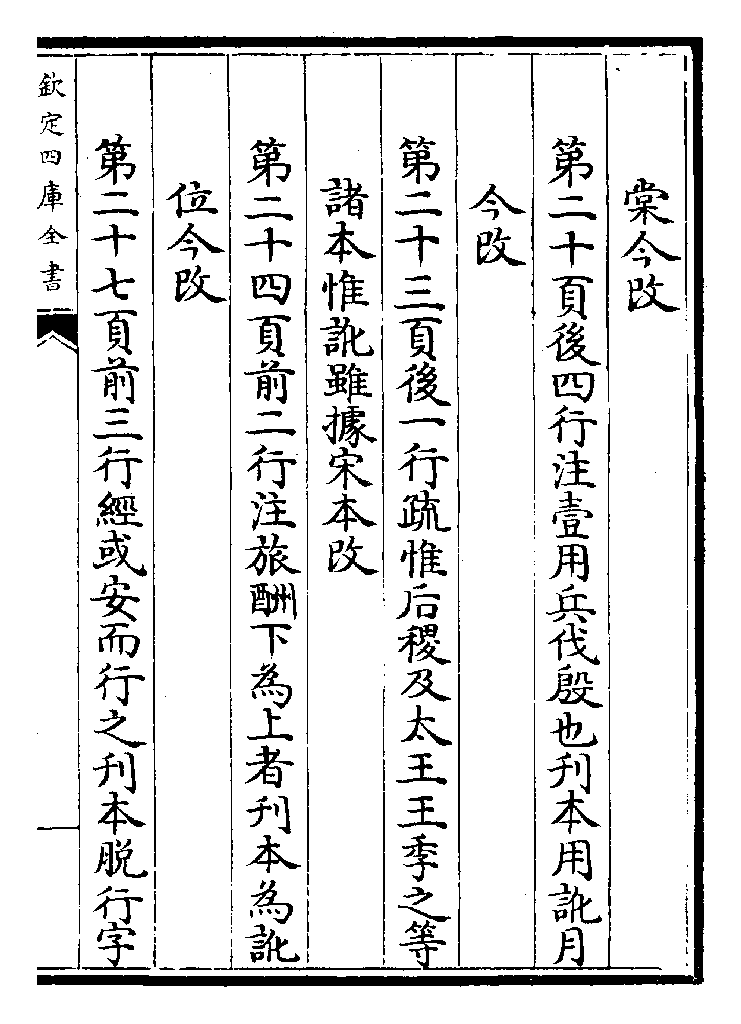 棠今改
第二十頁後四行注壹用兵伐殷也刋本用訛月
今改
第二十三頁後一行疏惟后稷及太王王季之等
諸本惟訛雖據宋本改
第二十四頁前二行注旅酬下為上者刋本為訛
位今改
第二十七頁前三行經或安而行之刋本脱行字
欽定四庫全書